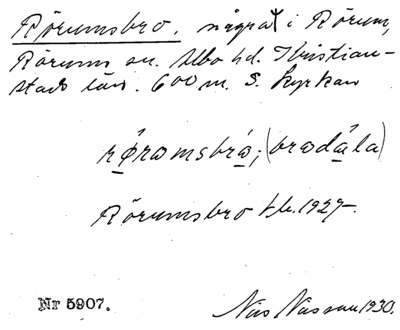 Rörumsbro. någrat i Rörum,
Rörums sn. Albo hd. Kristian-
stads län. 600 m. S. kyrkan
røramsbro; (bradala)
Rörumsbro tk. 1927.
Nr 5907.
Nils Nassau 1930.